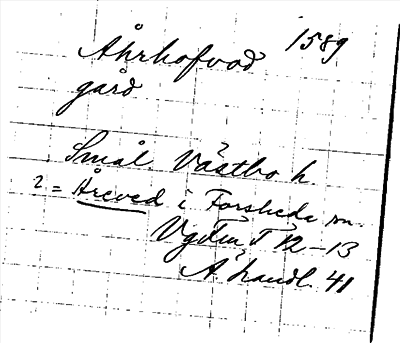 Åhrhofvad 1589
gård
Smål. Västbo h.
? = Åreved i Forsheda sn.
Vgdeu T 12-13
Ä handl 41